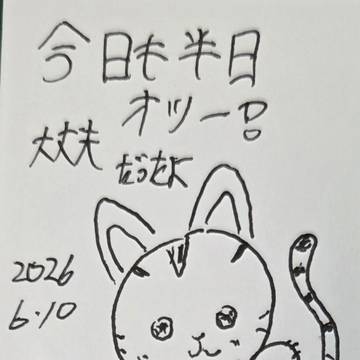 今日も半日
オツー!
大丈夫
だったよ
2026
6.10